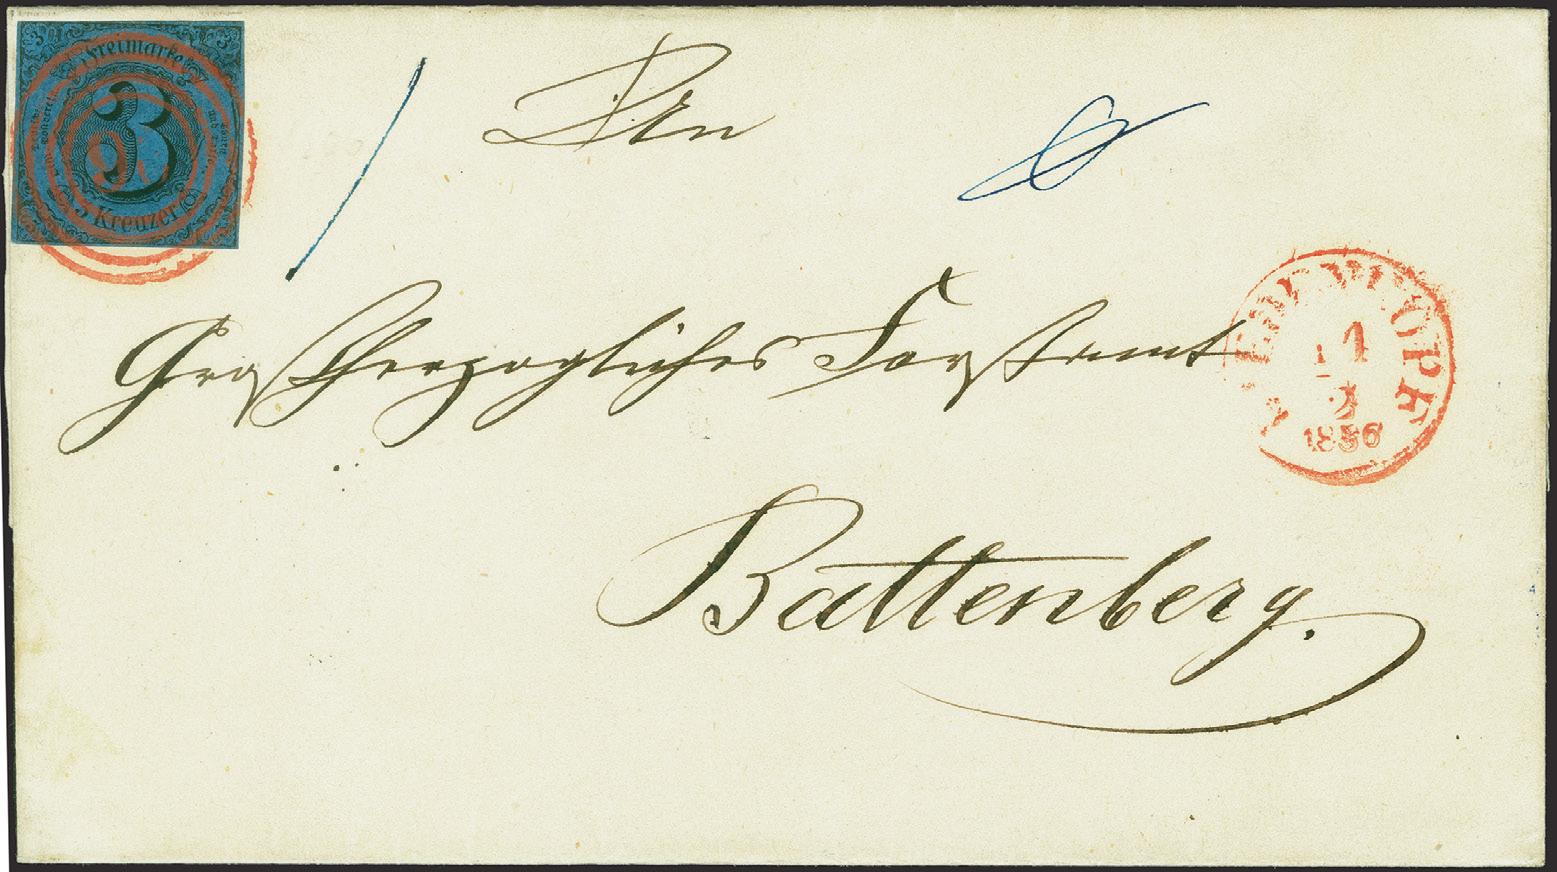 Freimarke
3
3 Kreuzer
An
Großherzogliches Forstamt
14
2
1856
Battenberg.